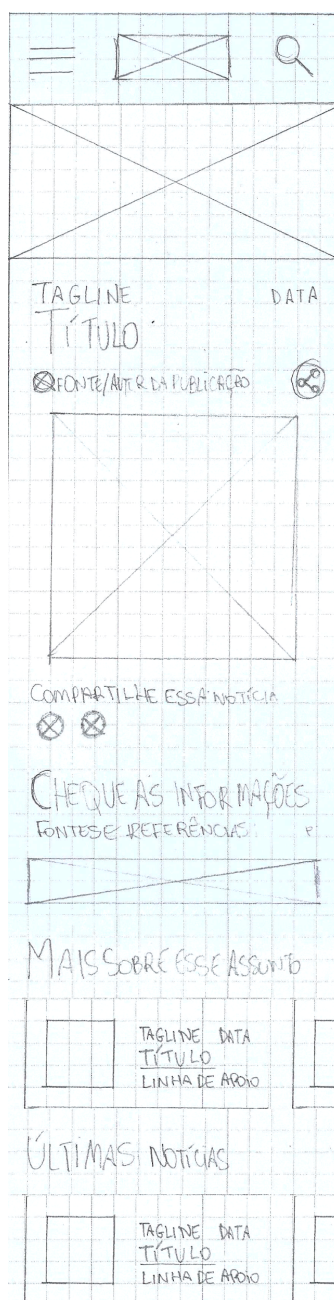 TAGLINE DATA
TÍTULO
FONTE/AUTOR DA PUBLICAÇÃO
COMPARTILHE ESSA NOTÍCIA
CHEQUE AS INFORMAÇÕES
FONTES E REFERÊNCIAS
MAIS SOBRE ESSE ASSUNTO
TAGLINE DATA
TÍTULO
LINHA DE APOIO
ÚLTIMAS NOTÍCIAS
TAGLINE DATA
TÍTULO
LINHA DE APOIO